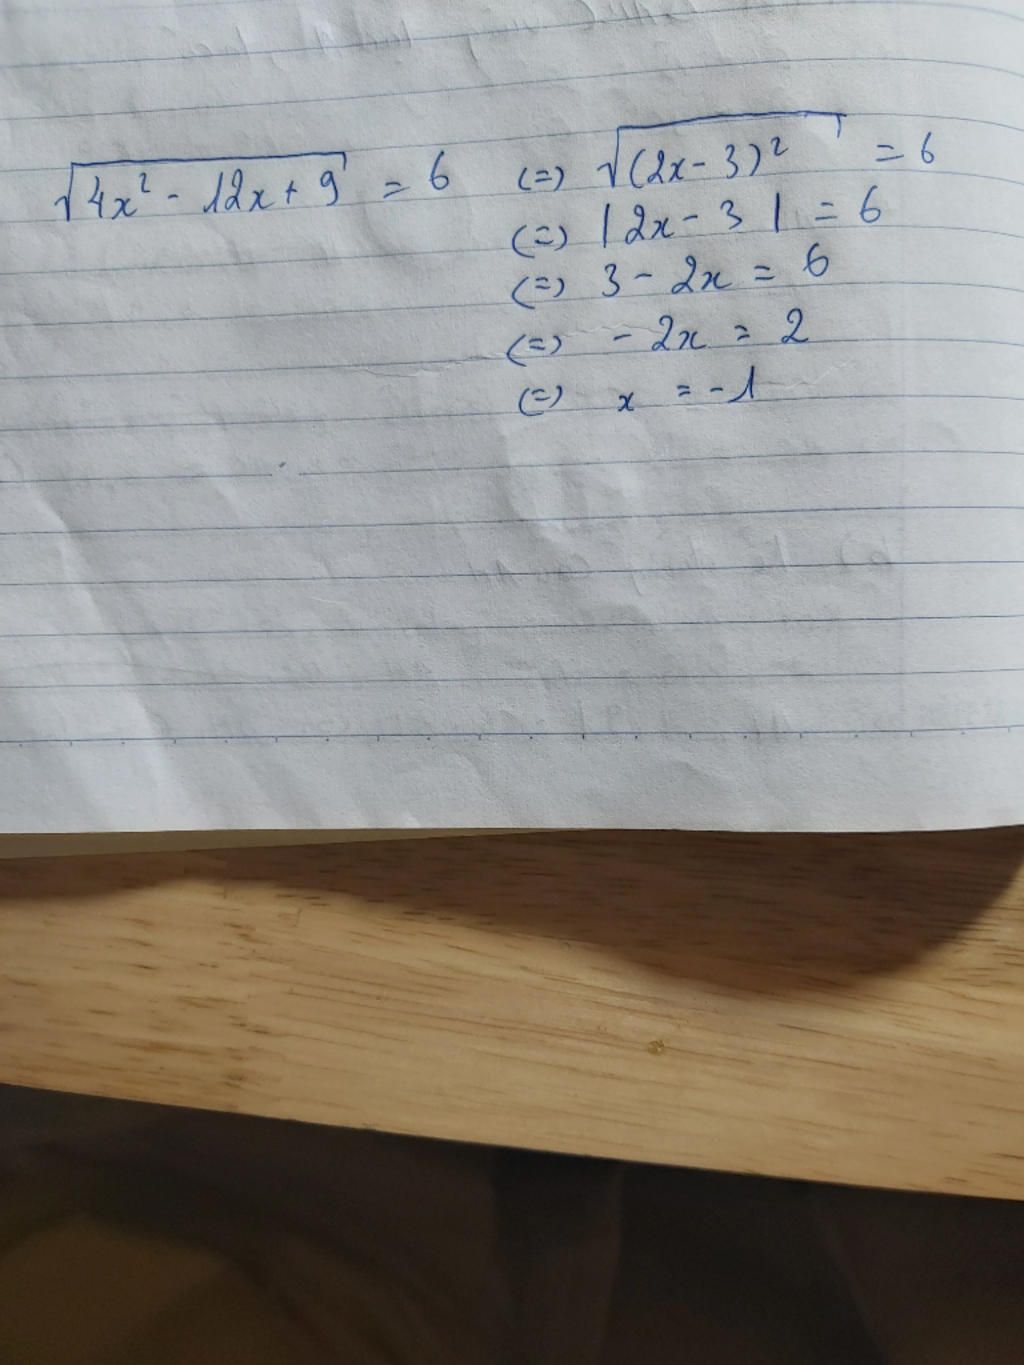 √(4x² - 12x + 9) = 6 (=) √((2x - 3)²) = 6
(=) |2x - 3| = 6
(=) 3 - 2x = 6
(=) - 2x = 2
(=) x = -1